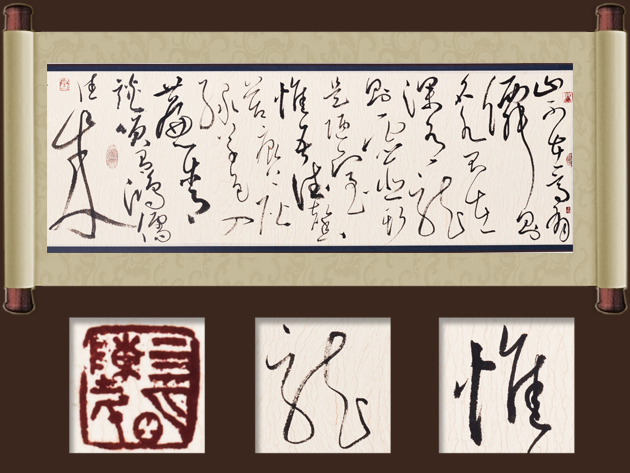 山不在高有
仙則
名水不在
深有龍
則靈斯
是陋室
惟吾德馨
苔痕上階
綠草色入
簾青
談笑有鴻儒
往來
龍
惟